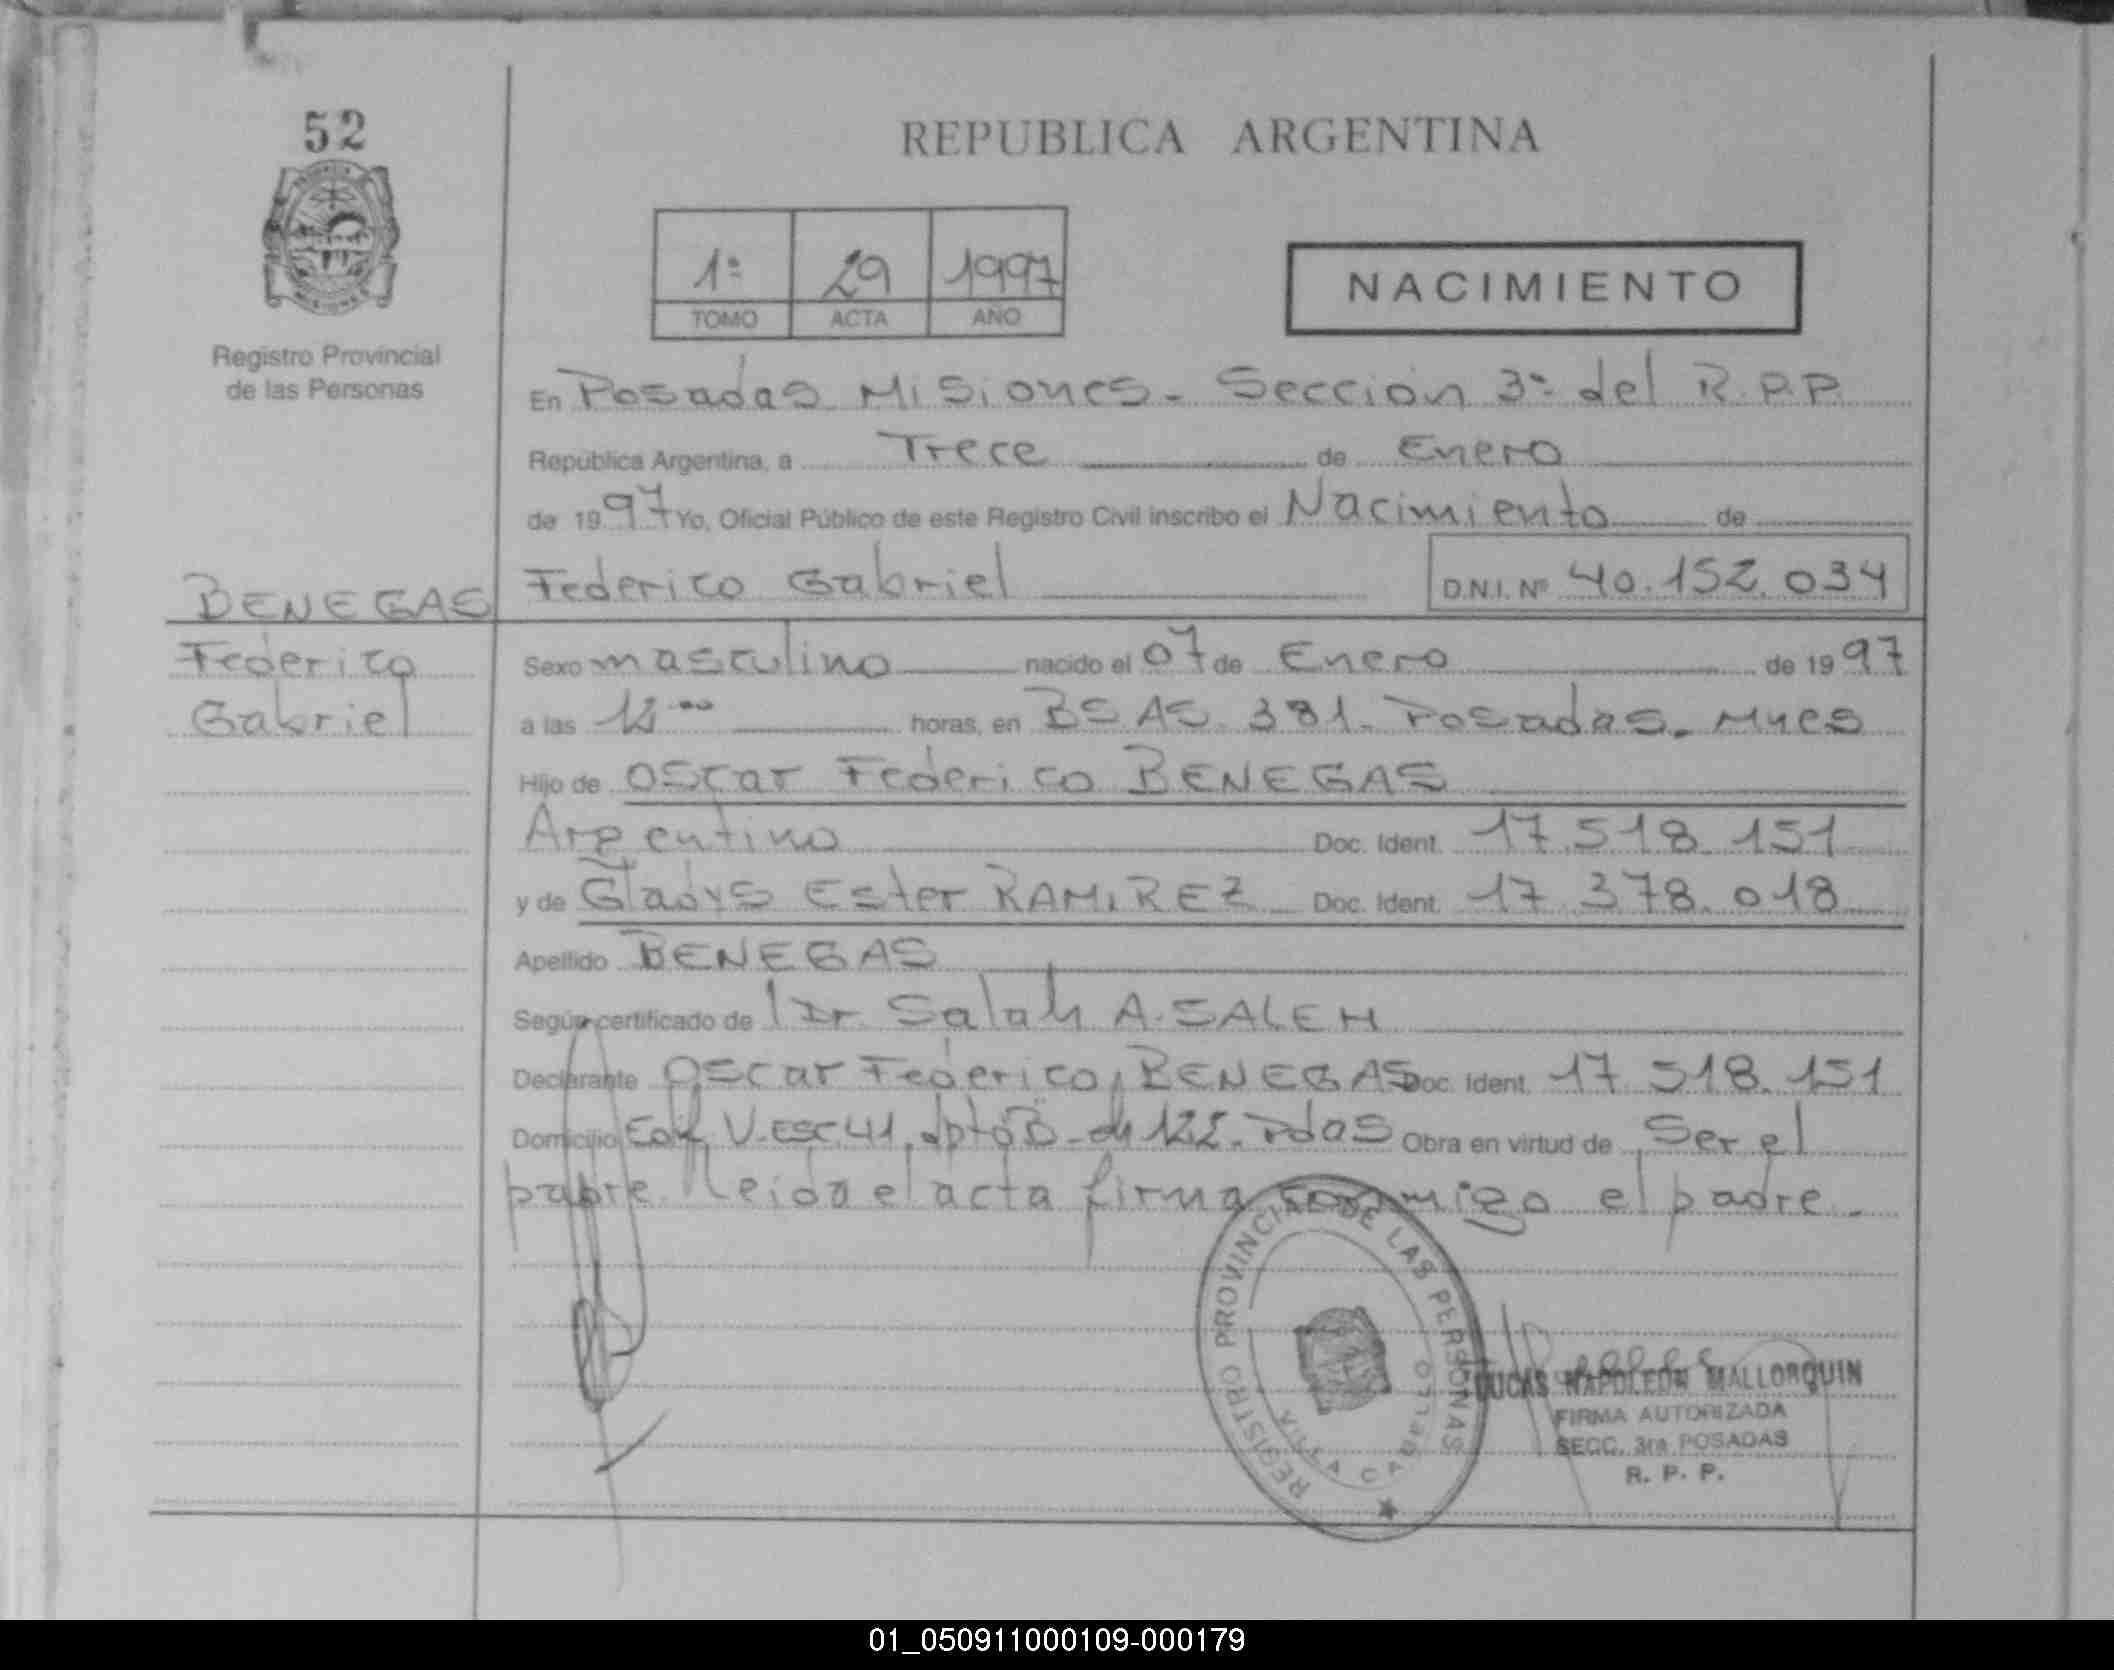 52
REPUBLICA ARGENTINA
1º 29 1997
TOMO ACTA AÑO
NACIMIENTO
Registro Provincial
de las Personas
En Posadas Misiones - Sección 3º del R.P.P.
República Argentina, a Trece de Enero
de 1997 Yo, Oficial Público de este Registro Civil inscribo el Nacimiento de
BENEGAS
Federico Gabriel D.N.I. Nº 40.152.034
Federico
Gabriel
Sexo masculino nacido el 07 de Enero de 1997
a las horas, en BS AS. 381. Posadas. Mnes
Hijo de Oscar Federico BENEGAS
Argentino Doc. Ident. 17.518.151
y de Gladys Ester RAMIREZ Doc. Ident. 17.378.018
Apellido BENEGAS
Según certificado de Dr. Salah A. SALEH
Declarante Oscar Federico BENEGAS Doc. Ident. 17.518.151
Domicilio V-esc 41. dpto B - Pdas Obra en virtud de Ser el
padre. leida el acta firma conmigo el padre.
REGISTRO PROVINCIAL DE LAS PERSONAS
VILLA CABELLO
LUCAS NAPOLEON MALLORQUIN
FIRMA AUTORIZADA
SECC. 3ra POSADAS
R. P. P.
01_050911000109-000179